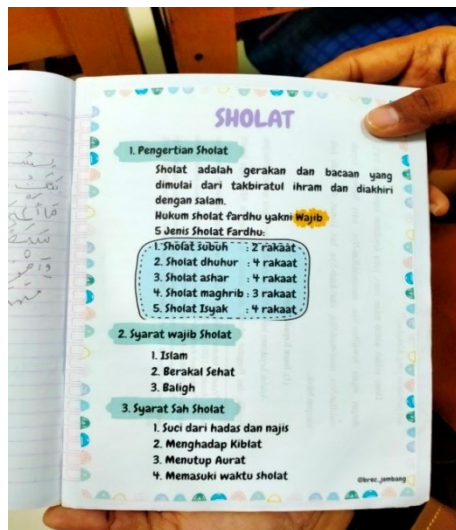 SHOLAT
1. Pengertian Sholat
Sholat adalah gerakan dan bacaan yang
dimulai dari takbiratul ihram dan diakhiri
dengan salam.
Hukum sholat fardhu yakni Wajib
5 Jenis Sholat Fardhu:
1. Sholat subuh : 2 rakaat
2. Sholat dhuhur : 4 rakaat
3. Sholat ashar : 4 rakaat
4. Sholat maghrib : 3 rakaat
5. Sholat Isyak : 4 rakaat
2. Syarat wajib Sholat
1. Islam
2. Berakal Sehat
3. Baligh
3. Syarat Sah Sholat
1. Suci dari hadas dan najis
2. Menghadap Kiblat
3. Menutup Aurat
4. Memasuki waktu sholat